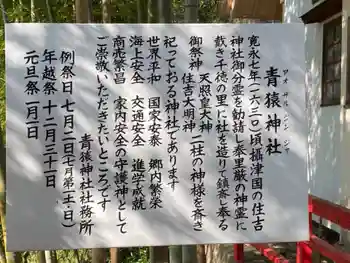 青猿神社
アオ ザル ジン ジャ
寛永七年(一六三〇)頃摂津国の住吉
神社御分霊を勧請し泰里厳の神霊に
戴き千徳の里に社を造りて鎮斎し奉る
御祭神 天照皇大神
住吉大明神 二社の神様を斎き
祀っておる神社であります
世界平和 国家安泰 郷内繁栄
海上安全 交通安全 進学成就
商売繁昌 家内安全の守護神として
ご崇敬いただきたいところです
青猿神社社務所
例祭日 七月二日(七月第一土・日)
年越祭 十二月三十一日
元旦祭 一月一日